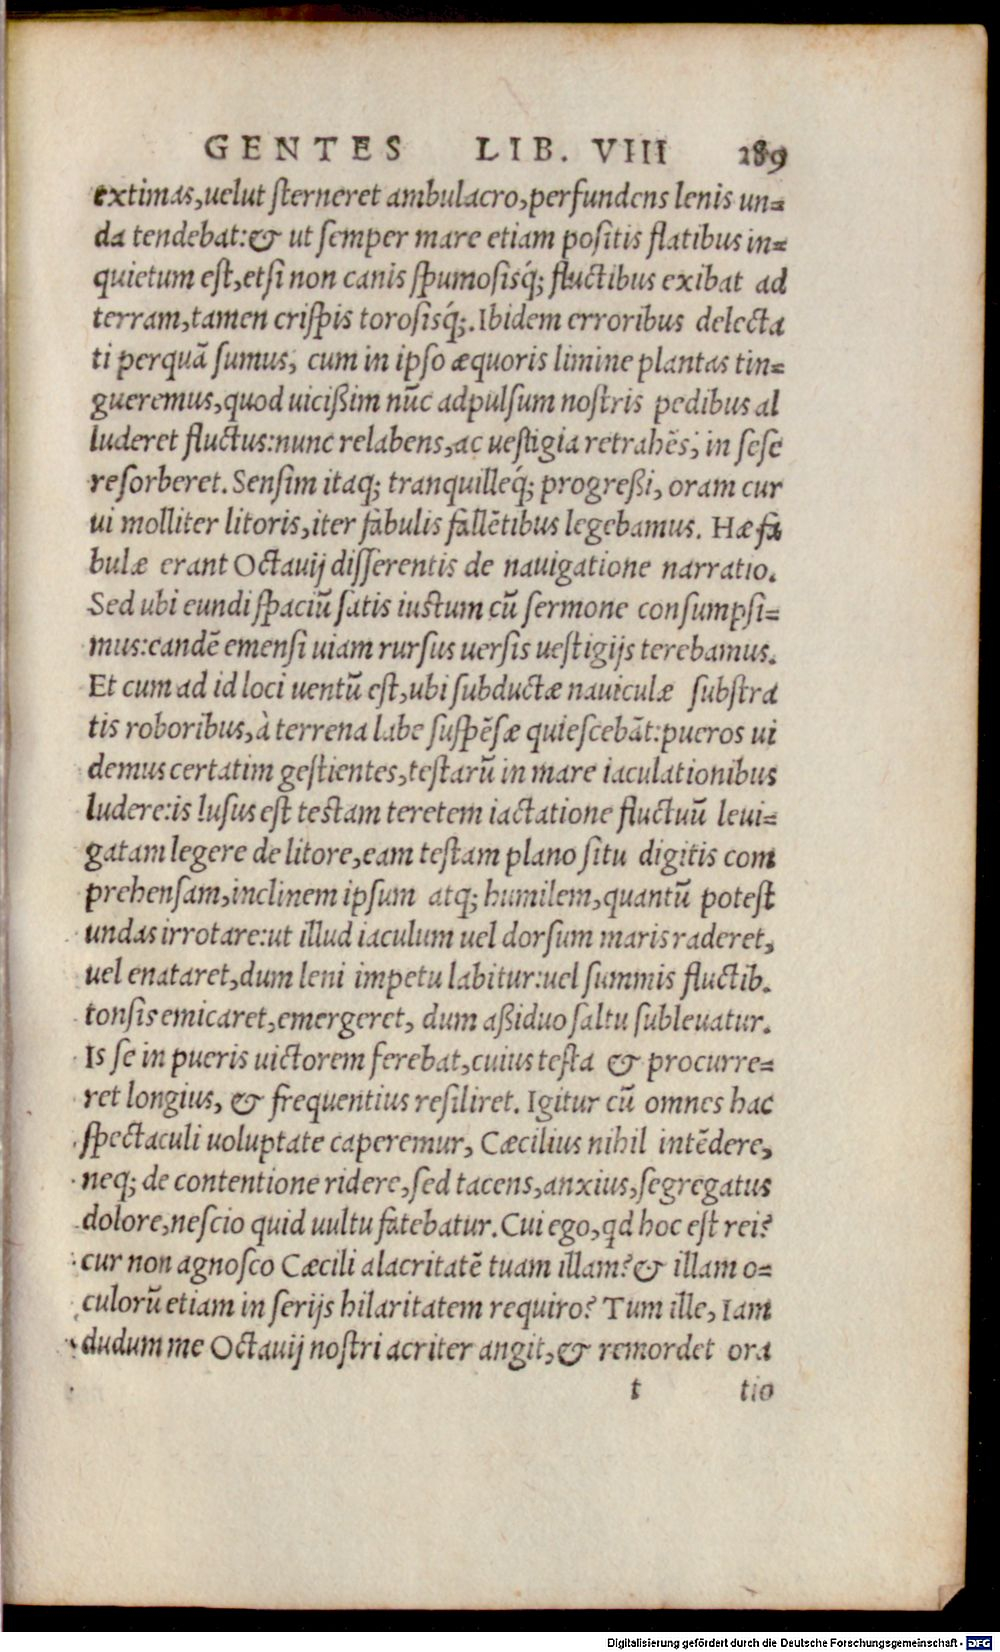 GENTES LIB. VIII 289
extimas,uelut ſterneret ambulacro,perfundens lenis un=
da tendebat:& ut ſemper mare etiam poſitis flatibus in=
quietum eſt,etſi non canis ſpumoſisq́; fluctibus exibat ad
terram,tamen criſpis toroſisq́;. Ibidem erroribus delecta
ti perquã ſumus, cum in ipſo æquoris limine plantas tin=
gueremus,quod uicißim nũc adpulſum noſtris pedibus al
luderet fluctus:nunc relabens,ac ueſtigia retrahẽs, in ſeſe
reſorberet. Senſim itaq; tranquilleq́; progreßi, oram cur
ui molliter litoris,iter fabulis fallẽtibus legebamus. Hæ fa
bulæ erant Octauij diſſerentis de nauigatione narratio.
Sed ubi eundi ſpaciũ ſatis iuſtum cũ ſermone conſumpſi=
mus:eandẽ emenſi uiam rurſus uerſis ueſtigijs terebamus.
Et cum ad id loci uentũ eſt,ubi ſubductæ nauiculæ ſubſtra
tis roboribus,à terrena labe ſuſpẽſæ quieſcebãt:pueros ui
demus certatim geſtientes,teſtarũ in mare iaculationibus
ludere:is luſus eſt teſtam teretem iactatione fluctuũ leui=
gatam legere de litore,eam teſtam plano ſitu digitis com
prehenſam,inclinem ipſum atq; humilem,quantũ poteſt
undas irrotare:ut illud iaculum uel dorſum maris raderet,
uel enataret,dum leni impetu labitur:uel ſummis fluctib.
tonſis emicaret,emergeret, dum aßiduo ſaltu ſubleuatur.
Is ſe in pueris uictorem ferebat,cuius teſta & procurre=
ret longius, & frequentius reſiliret. Igitur cũ omnes hac
ſpectaculi uoluptate caperemur, Cæcilius nihil intẽdere,
neq; de contentione ridere,ſed tacens,anxius,ſegregatus
dolore,neſcio quid uultu fatebatur. Cui ego,qd hoc eſt rei?
cur non agnoſco Cæcili alacritatẽ tuam illam? & illam o=
culorũ etiam in ſerijs hilaritatem requiro? Tum ille, Iam
dudum me Octauij noſtri acriter angit,& remordet ora
t tio
Digitalisierung gefördert durch die Deutsche Forschungsgemeinschaft - DFG